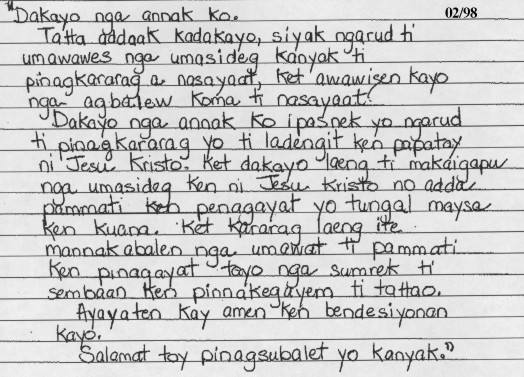 "Dakayo nga annak ko. 02/98
Tatta addaak kadakayo, siyak ngarud ti
umawawes nga umasideg kanyak ti
pinagkararag a nasayaat, ket awawisen kayo
nga agbalew koma ti nasayaat!
Dakayo nga annak ko ipasnek yo ngarud
ti pinagkararag yo ti ladengit ken papatay
ni Jesu Kristo. Ket dakayo laeng ti makaigapu
nga umasideg ken ni Jesu Kristo no adda
pammati ken penagayat yo tungal maysa
ken kuana. Ket kararag laeng ite
mannakabalen nga umawat ti pammati
ken pinagayat tayo nga sumrek ti
sembaan ken pinnakegayem ti tattao.
Ayayaten kay amen ken bendesiyonan
kayo.
Salamat toy pinagsubalet yo kanyak."